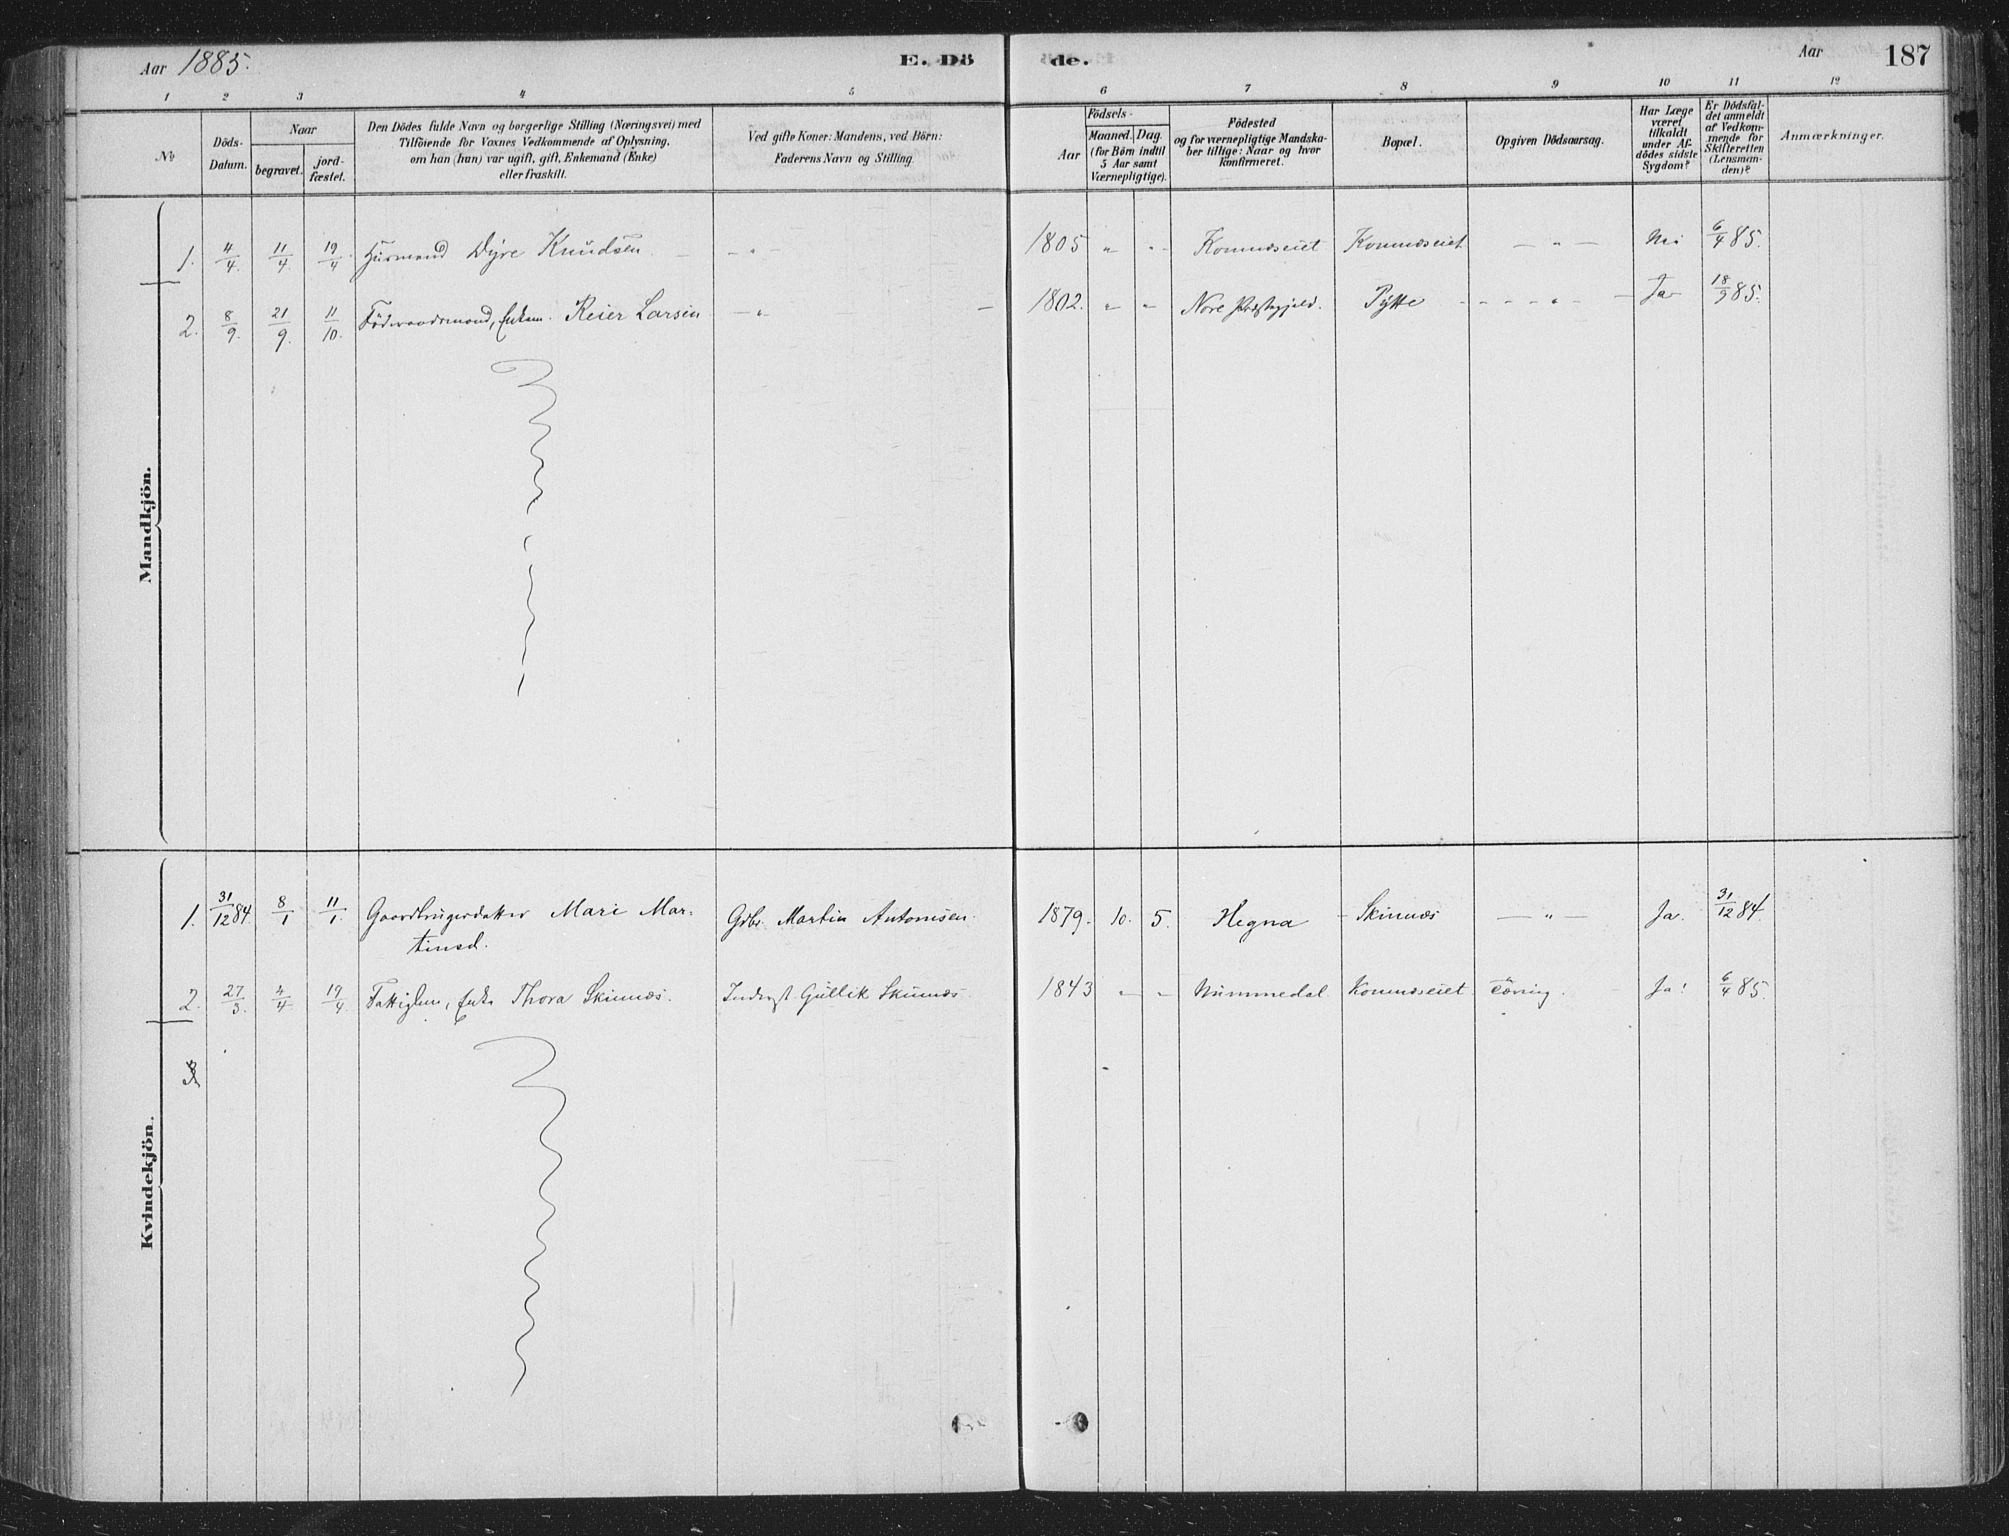 Aar 1885.
E. Dö
de.
Aar
187
1 2 3 4 5 6 7 8 9 10 11 12
No
Döds-
Datum.
Naar
begravet.
jord-
fæstet.
Den Dödes fulde Navn og borgerlige Stilling (Næringsvei) med
Tilföiende for Voxnes Vedkommende af Oplysning,
om han (hun) var ugift, gift, Enkemand (Enke)
eller fraskilt.
Ved gifte Koner: Mandens, ved Börn:
Faderens Navn og Stilling.
Födsels-
Aar
Maaned.
Dag.
(for Börn indtil
5 Aar samt
Værnepligtige).
Födested
og for værnepligtige Mandska-
ber tillige: Naar og hvor
konfirmeret.
Bopæl.
Opgiven Dödsaarsag.
Har Læge
været
tilkaldt
under Af-
dödes sidste
Sygdom?
Er Dödsfal-
det anmeldt
af Vedkom-
mende for
Skifteretten
(Lensman-
den)?
Anmærkninger.
Mandkjön.
1. 4/4. 11/4. 19/4. Huusmand Dyre Knudsen — " — 1805 " " Komnæseiet Komnæseiet — " — Nei 6/4 85.
2. 8/9. 21/9. 11/10. Föderaadsmand, Enkem. Reier Larsen — " — 1802. " " Nore Præstegjeld. Pytte — " — Ja 18/9 85.
Kvindekjön.
1. 31/12 84. 8/1 11/1. Gaardbrugerdatter Mari Mar= Gdbr. Martin Antonsen. 1879. 10. 5. Hegna Skimnæs — " — Ja. 31/12 84.
tinsd.
2. 27/3. 4/4 19/4. Fattiglem, Enke Thora Skimnæs. Inderst Gullik Skimnæs 1843 " " Nummedal Komnæseiet Tæring. Ja! 6/4 85.
3